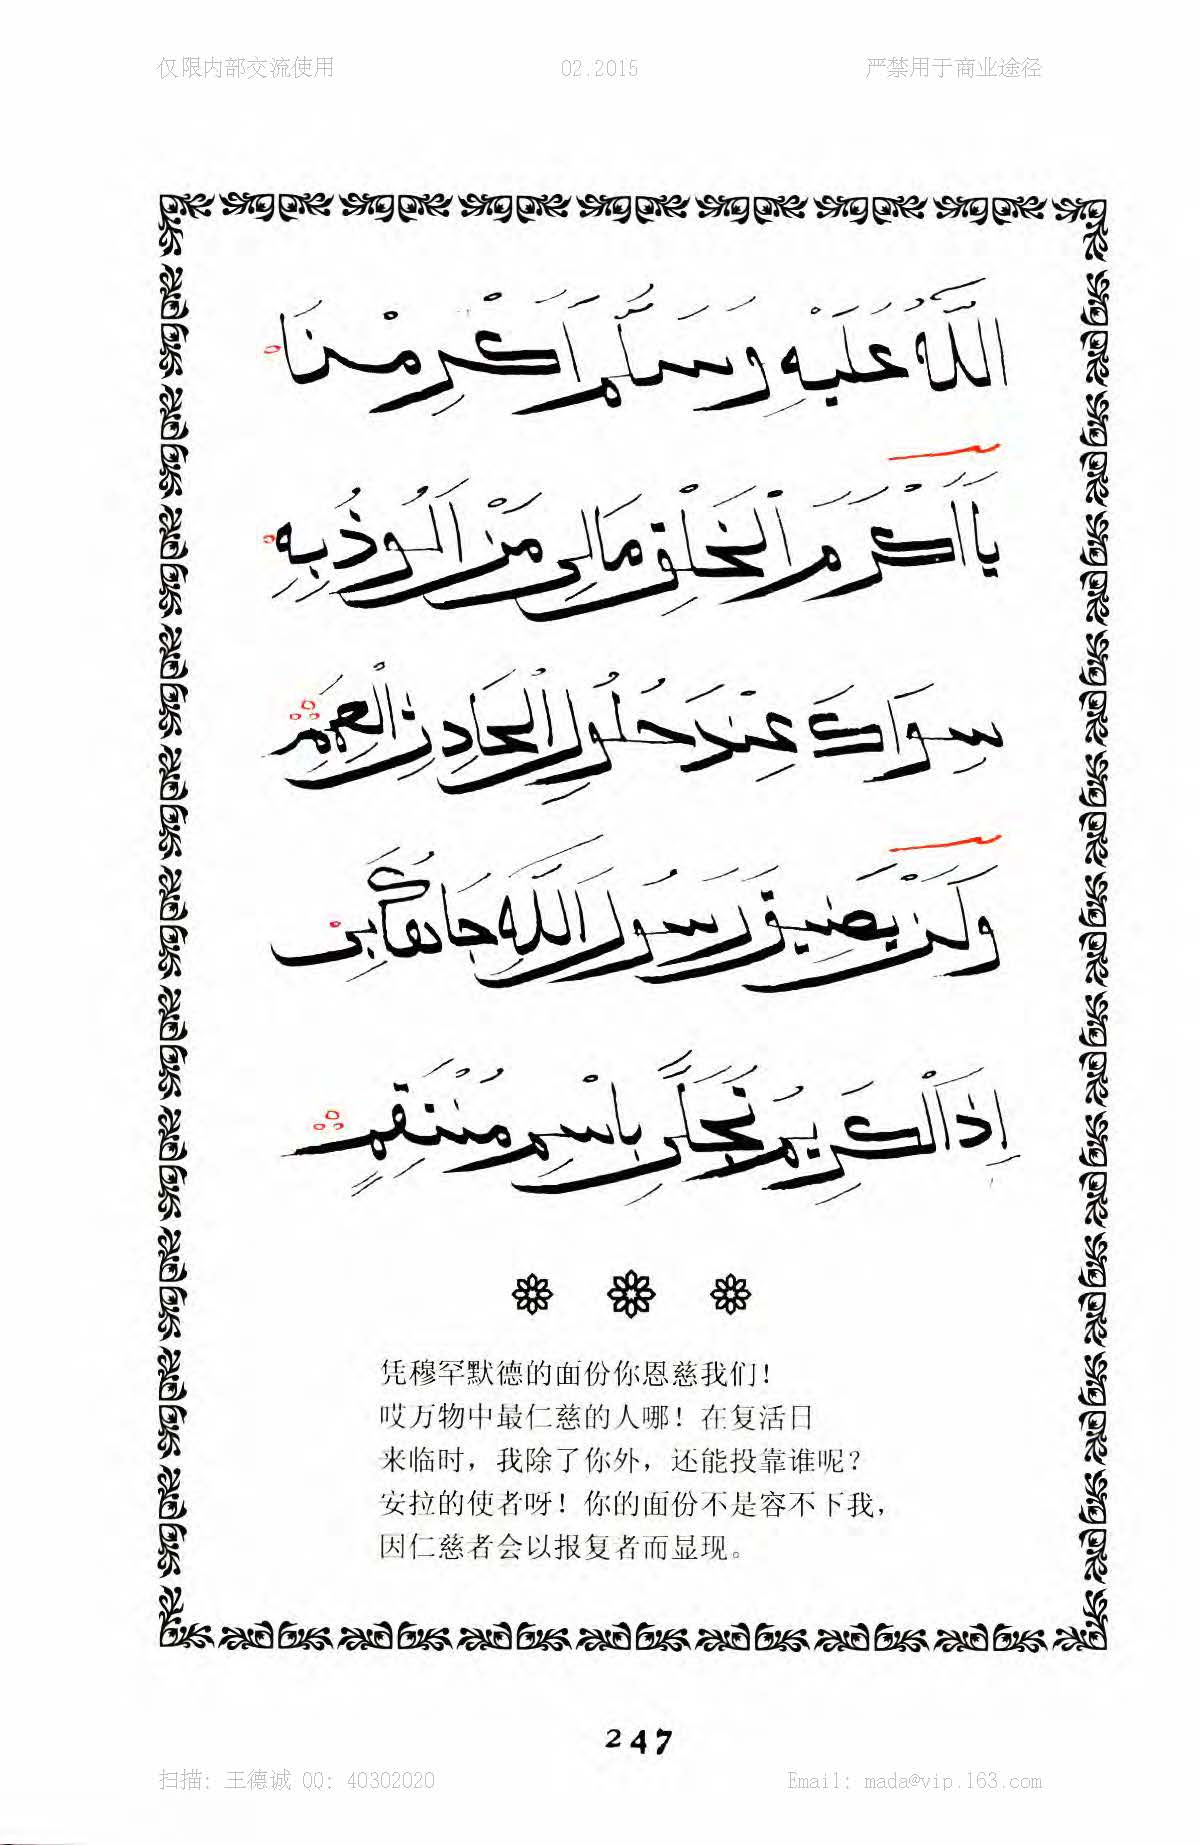 仅限内部交流使用 02.2015 严禁用于商业途径
اللَّهُ عَلَيْهِ وَسَلَّمَ اَكْرِمْنَا
يَا اَكْرَمَ الْخَلْقِ مَالِى مَنْ اَلُوذُ بِهِ
سِوَاكَ عِنْدَ حُلُولِ الْحَادِثِ الْعَمِمِ
وَلَنْ يَضِيقَ رَسُولَ اللَّهِ جَاهُكَ بِى
اِذَا الْكَرِيمُ تَجَلَّى بِاسْمِ مُنْتَقِمٍ
凭穆罕默德的面份你恩慈我们！
哎万物中最仁慈的人哪！在复活日
来临时，我除了你外，还能投靠谁呢？
安拉的使者呀！你的面份不是容不下我，
因仁慈者会以报复者而显现。
247
扫描：王德诚 QQ: 40302020 Email: mada@vip.163.com